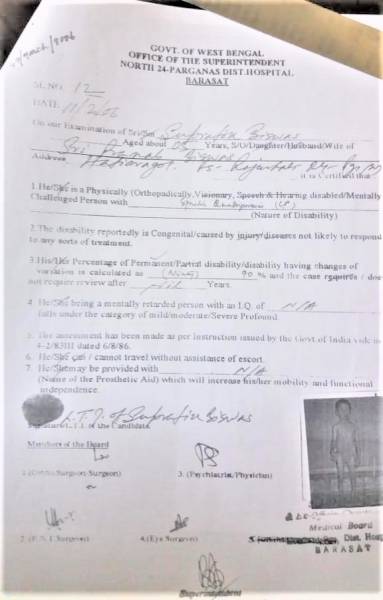 GOVT. OF WEST BENGAL
OFFICE OF THE SUPERINTENDENT
NORTH 24-PARGANAS DIST.HOSPITAL
BARASAT
SL.NO. 12
DATE 11/2/06
On our Examination of Sri/Sm Supratim Biswas
Aged about Years, S/O/Daughter/Husband/Wife of
Sri Biswas
Address Ps-
it is Certified that
1.He/She is a Physically (Orthopadically,Visionary, Speech & Hearing disabled/Mentally
Challenged Person with
(Nature of Disability)
2.The disability reportedly is Congenital/caused by injury/diseases not likely to respond
to any sorts of treatment.
3.His/Her Percentage of Permanent/Partial disability/disability having changes of
variation is calculated as (Ninety) 90 % and the case requires / does
not require review after Nil Years.
4. He/She being a mentally retarded person with an I.Q. of N/A
falls under the category of mild/moderate/Severe Profound.
5. The assessment has been made as per instruction issued by the Govt.of India vide no
4-2/83III dated 6/8/86.
6. He/She can / cannot travel without assistance of escort.
7. He/She may be provided with N/A
(Name of the Prosthetic Aid) which will increase his/her mobility and functional
independence.
L.T.I. of Supratim Biswas
Signature/L.T.I. of the Candidate.
Members of the Board
1.(Ortho Surgeon/Surgeon)
3. (Psychiatrist/Physician)
2.(E.N.T.Surgeon)
4.(Eye Surgeon)
Medical Board
Dist. Hosp
BARASAT
Superintendent